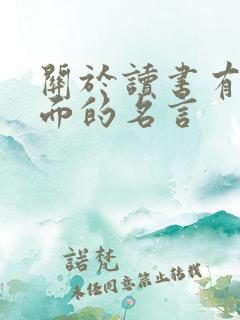 關於讀書有
而的名言
諾梵
未任同意禁止转载